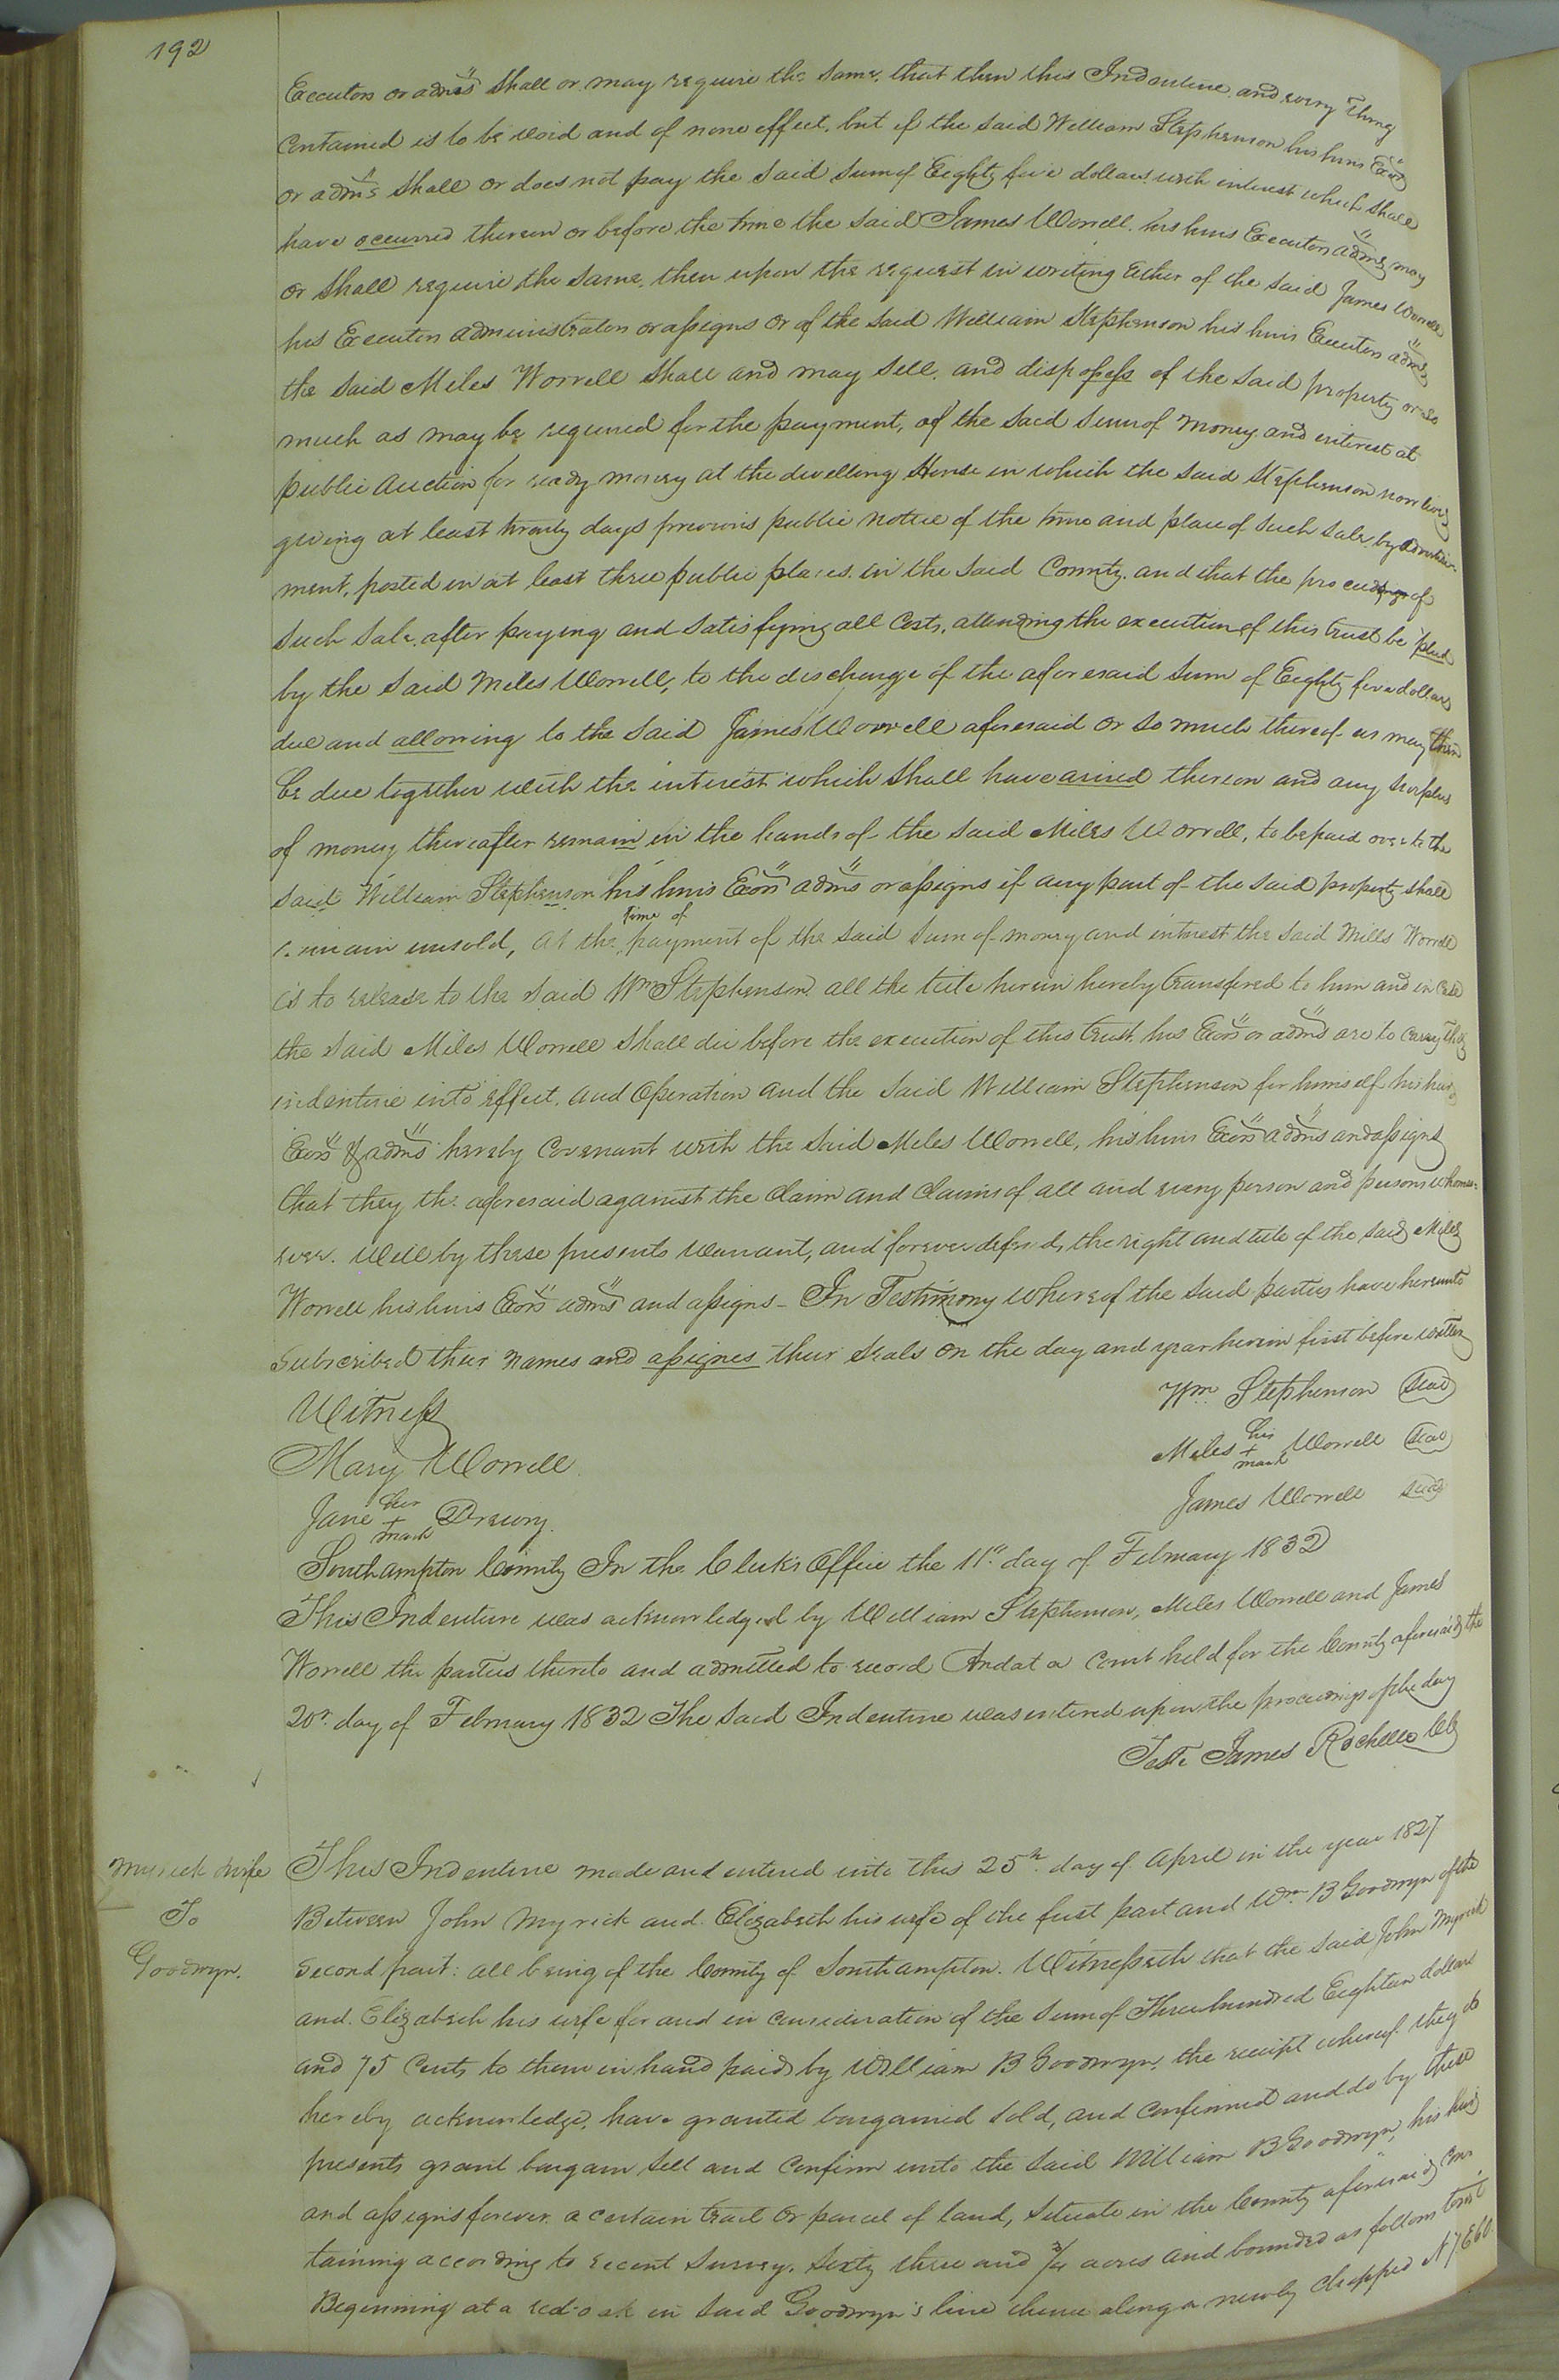 192
Executors or adm͞s shall or may require the same, that then this Indenture and every Thing
Contained is to be void and of none effect, but if the said William Stephenson his heirs Exors
or adm͞s shall or does not pay the said sum of Eighty five dollars with interest which shall
have occurred thereon or before the time the said James Worrell, his heirs Executors adms may
or shall require the same, then upon the request in writing Either of the said James Worrell
his Executors administrators or assigns or of the said William Stephenson his heirs Executors adms
the said Miles Worrell shall and may sell, and dispossess of the said property or so
much as may be required for the payment, of the said sum of money and interest at
public Auction for ready money at the dwelling House in which the said Stephenson now lives
giving at least twenty days previous public notice of the time and place of such sale, by advertise-
ment, posted in at least three public places in the said County, and that the proceedings of
such sale, after paying and satisfying all Costs, attending the execution of this trust be
by the said Miles Worrell, to the discharge of the aforesaid sum of Eighty five dollars
due and allowing to the said James Worrell aforesaid or so much thereof as may then
be due together with the interest which shall have arised thereon and any surplus
of money thereafter remain in the hands of the said Miles Worrell, to be paid over to the
said William Stephenson his heirs Exors adms or assigns if any part of the said property shall
remain unsold, at the time of payment of the said sum of money and interest the said Mills Worrell
is to release to the said Wm Stephenson all the title herein hereby transfered to him and in Case
the said Miles Worrell shall die before the execution of this trust his Exors or adms are to carry this
indenture into effect, and Operation and the said William Stephenson for himself his heirs
Exors & adms hereby Covenant with the said Miles Worrell, his heirs Exors adms and assigns
that they the aforesaid against the Claim and Claims of all and every person and persons whomso-
ever. Will by these presents Warrant, and forever defend, the right and title of the said Miles
Worrell his heirs Exors adms and assigns - In Testimony whereof the said parties have hereunto
Subscribed their names and assignes their seals on the day and year herein first before written
Witness
Wm Stephenson Seal
Mary Worrell
Miles his + mark Worrell Seal
Jane her + mark Drewry.
James Worrell Seal
Southampton County In the Clerk's Office the 11th day of February 1832
This Indenture was acknowledged by William Stephenson, Miles Worrell and James
Worrell the parties thereto and admitted to record And at a Court held for the County aforesaid the
20th day of February 1832 The said Indenture was entered upon the proceedings of the day
Teste James Rochelle Clk
Myrick & wife
To
Goodwyn.
This Indenture made and entered into this 25th day of April in the year 1827
Between John Myrick and Elizabeth his wife of the first part and Wm B Goodwyn of the
second part: all being of the County of Southampton. Witnesseth that the said John Myrick
and Elizabeth his wife for and in consideration of the sum of Three hundred Eighteen dollars
and 75 Cents to them in hand paid by William B Goodwyn, the receipt whereof they do
hereby acknowledge, have granted bargained sold, and confirmed and do by these
presents grant bargain sell and Confirm unto the said William B Goodwyn, his heirs
and assigns forever a certain tract or parcel of land, situate in the County aforesaid, Con-
taining according to recent survey, Sixty three and 3/4 acres and bounded as follows towit
Beginning at a red-oak in said Goodwyn's line thence along a newly chopped N 7 E 60